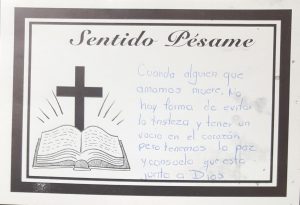 Sentido Pésame
Cuando alguien que
amamos muere, No
hay forma de evitar
la tristeza y tener un
vacio en el corazón
pero tenemos la paz
y consuelo que esta
junto a Dios